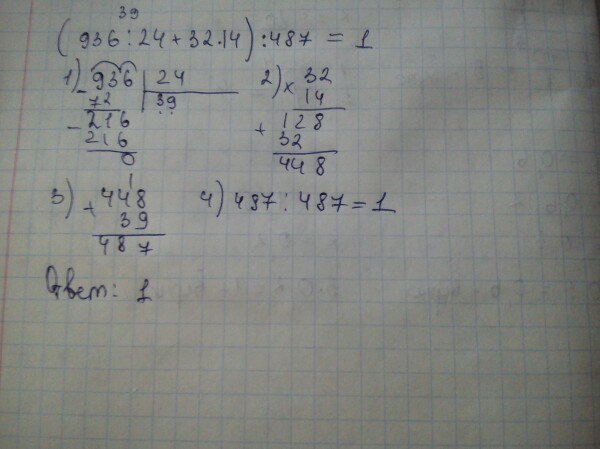 39
(936:24+32·14):487=1
1) -936 | 24
72 39
-216
216
0
2) × 32
14
+ 128
32
448
1
3) + 448
39
487
4) 487:487=1
Ответ: 1